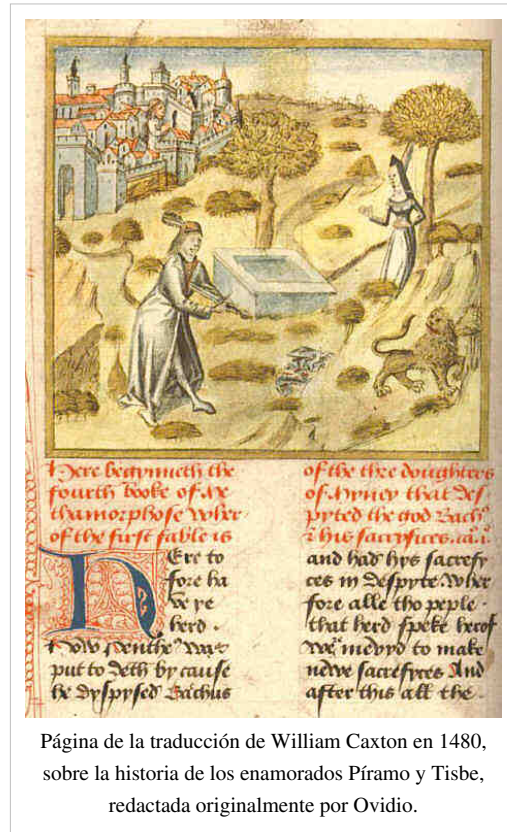 Here begynneth the
fourth booke of Me
thamorphose wher
of the first fable is
Ere to
fore ha
ve ye
herd
how Penthe⁹ was
put to deth by cause
he dyspysed Bachus
of the thre doughtres
of Myney that des
pyted the god Bach⁹
& his sacrefices
and had hys sacrefy
ces in despyte wher
fore alle tho peple
that herd speke herof
mevyd to make
newe sacrefyces And
after this all the
Página de la traducción de William Caxton en 1480,
sobre la historia de los enamorados Píramo y Tisbe,
redactada originalmente por Ovidio.